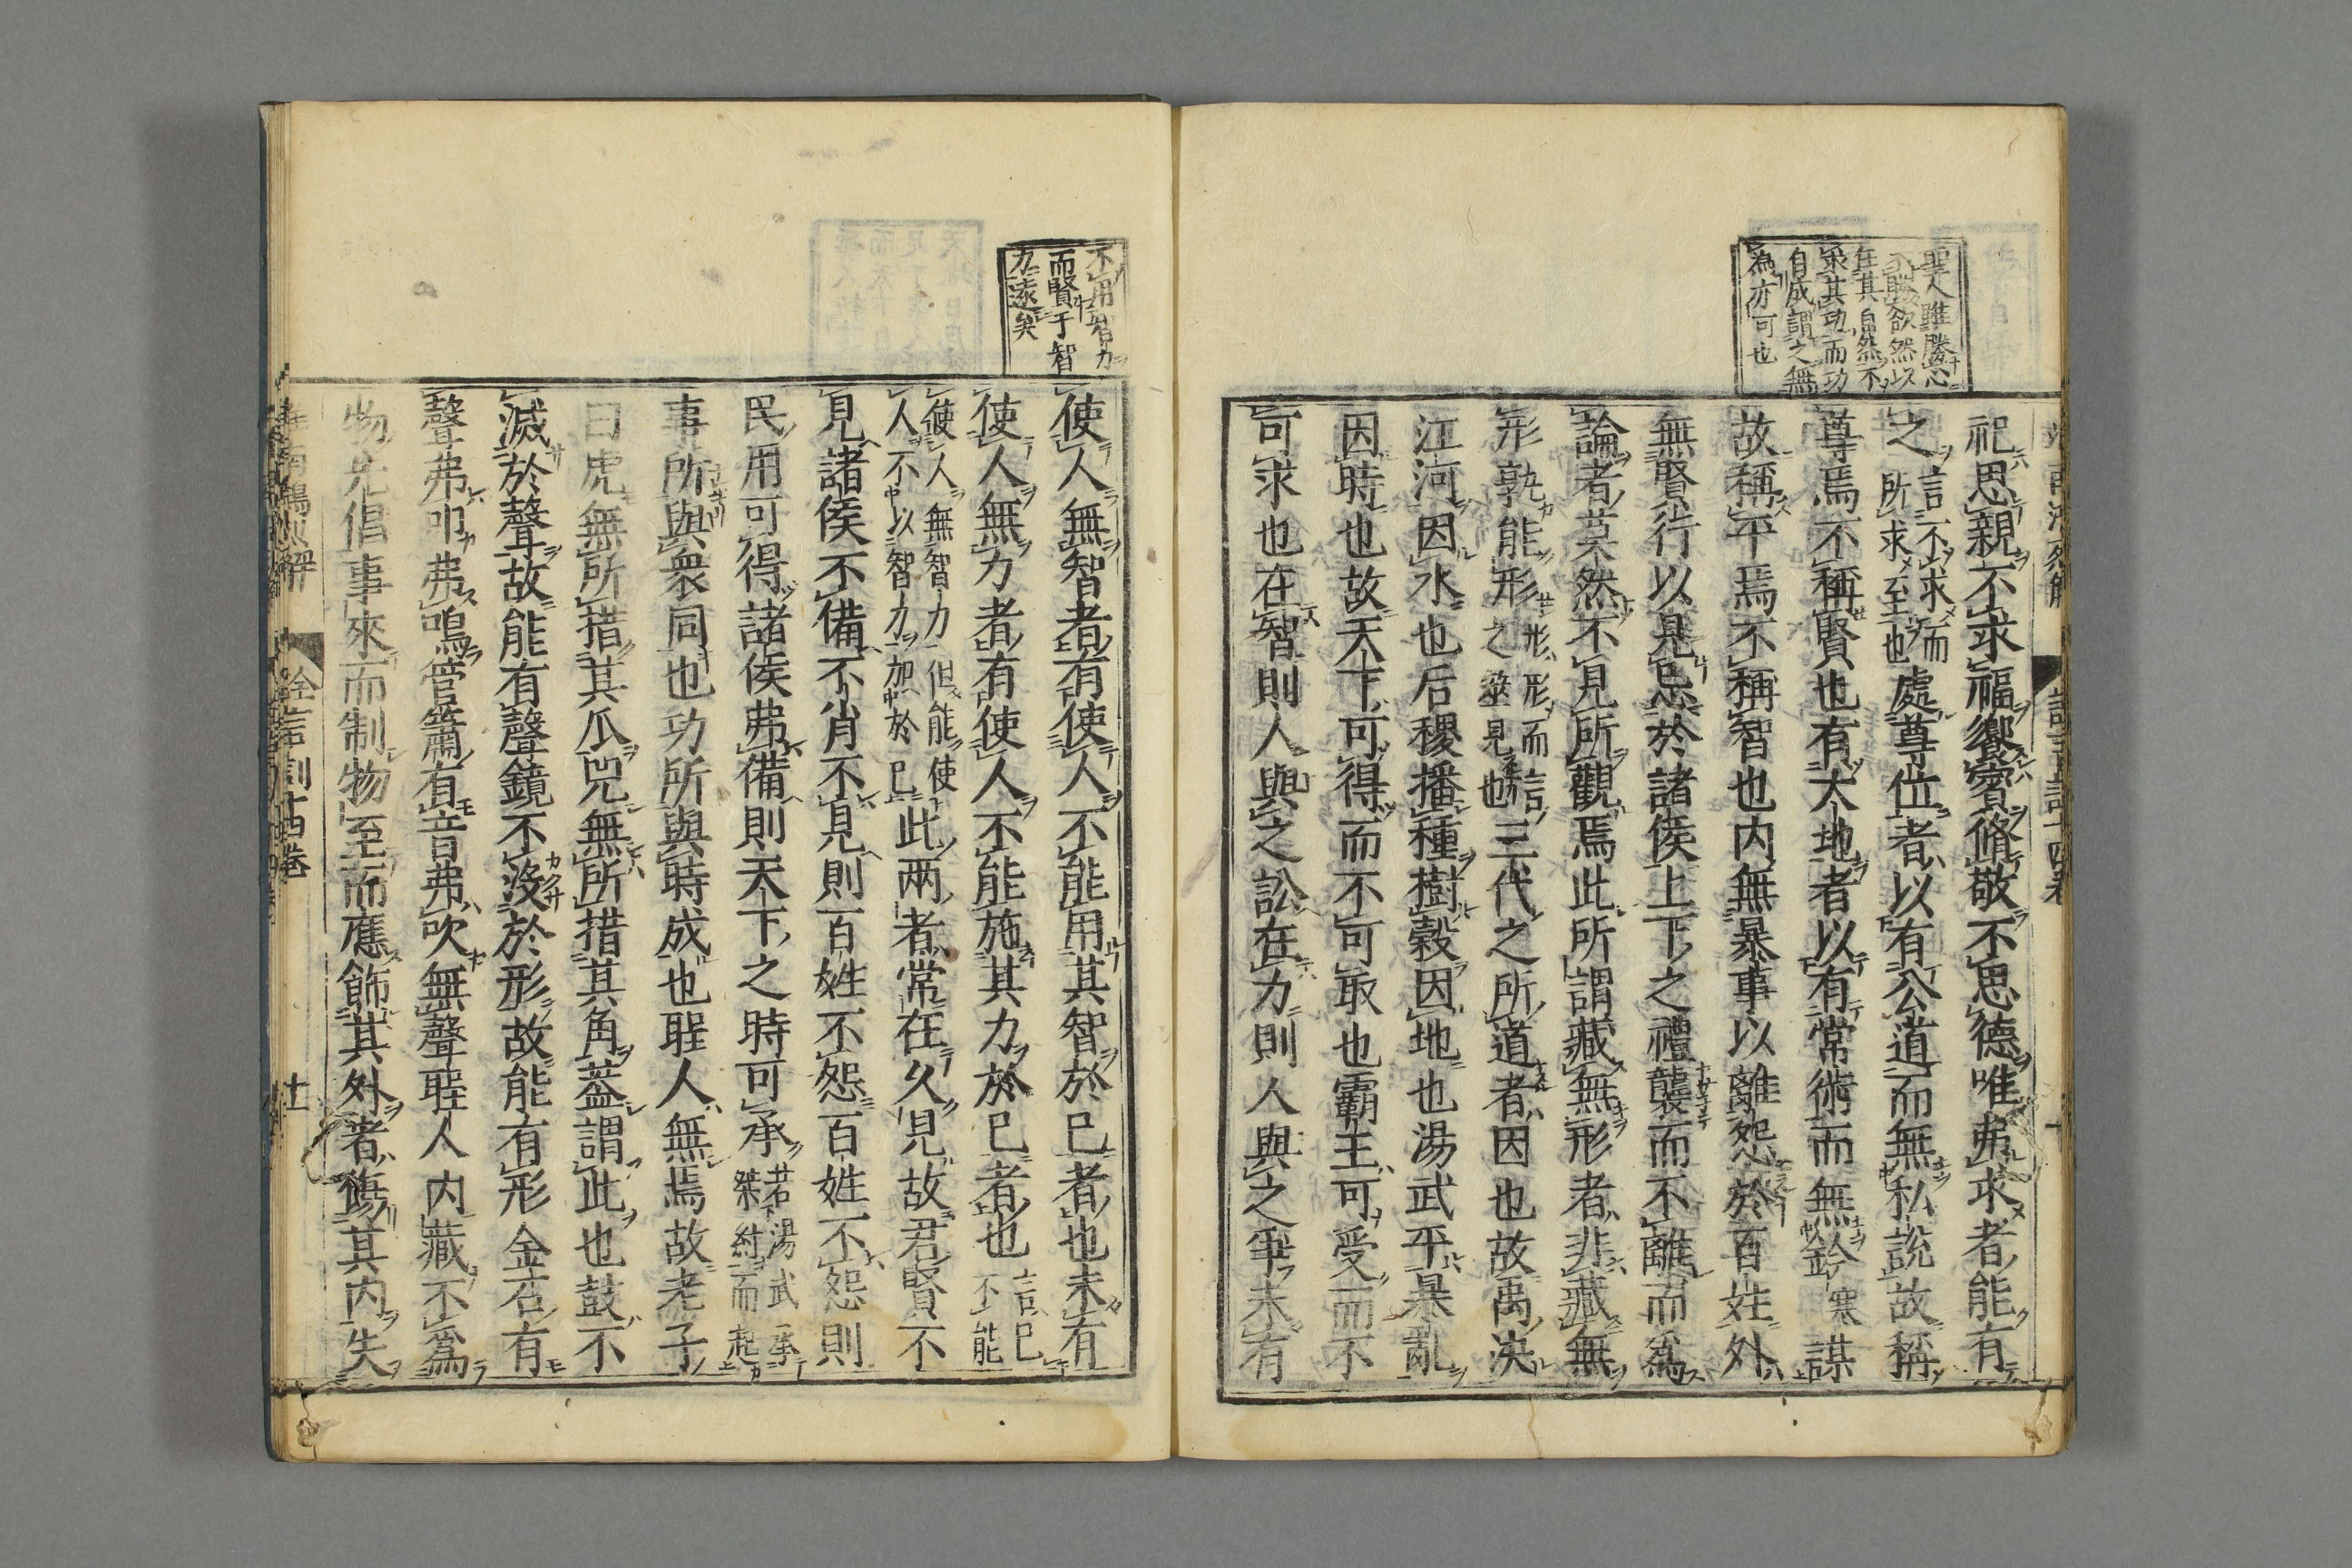 聖人雖勝心
勝欲然以
任其自然不
求其功而功
自成謂之無
為亦可也
祀思親不求福饗賓脩敬不思德唯弗求者能有
之言不求而所求至也處尊位者以有公道而無私說故稱
尊焉不稱賢也有大地者以有常術而無鈐寒謀
故稱平焉不稱智也内無暴事以離怨於百姓外
無賢行以見忌於諸侯上下之禮襲而不離而為
論者莫然不見所觀焉此所謂藏無形者非藏無
形孰能形形形而言之逆見也三代之所道者因也故禹決
江河因水也后稷播種樹穀因地也湯武平暴亂
因時也故天下可得而不可取也霸王可受而不
可求也在智則人與之訟在力則人與之爭未有
詮言訓十四卷
不用智力
而賢于智
力遠矣
使人無智者有使人不能用其智於已者也未有
使人無力者有使人不能施其力於已者也言已不能
使人無智力但能使人不以智力加於已此兩者常在久見故君賢不
見諸侯不備不肖不見則百姓不怨百姓不怨則
民用可得諸侯弗備則天下之時可承若湯武承桀紂而起
事所與衆同也功所與時成也聖人無焉故老子
曰虎無所措其爪兕無所措其角蓋謂此也鼓不
滅於聲故能有聲鏡不沒於形故能有形金石有
聲弗叩弗鳴管簫有音弗吹無聲聖人内藏不為
物先倡事來而制物至而應飾其外者傷其内失
淮南鴻烈解 詮言訓十四卷 十一